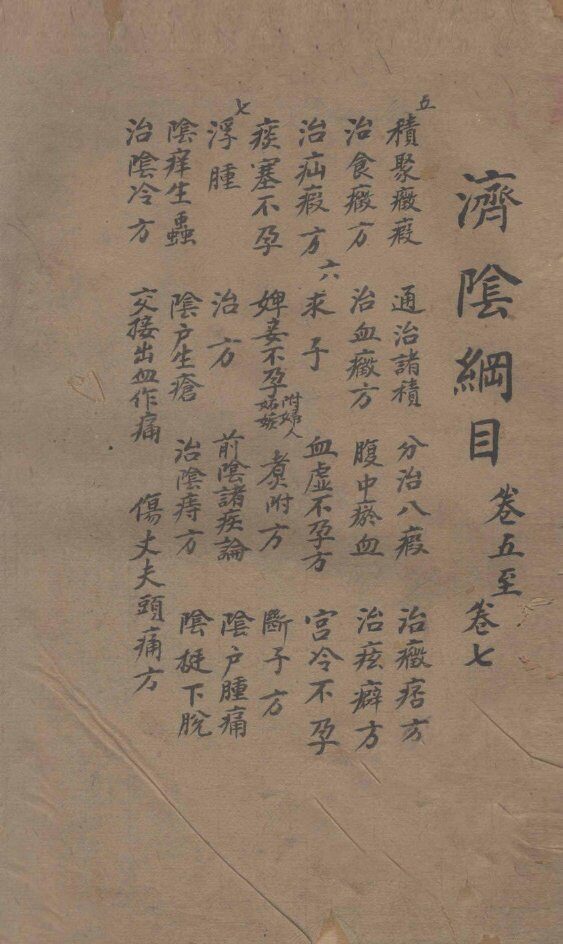 濟陰綱目 卷五至卷七
五 積聚癥瘕 通治諸積 分治八瘕 治癥痞方
治食癥方 治血癥方 腹中瘀血 治痃癖方
治疝瘕方 六 求子 血虛不孕方 宮冷不孕
痰塞不孕 婢妾不孕 附婦人妬嫉 煮附方 斷子方
七 浮腫 治方 前陰諸疾論 陰戶腫痛
陰痒生蟲 陰戶生瘡 治陰痔方 陰挺下脫
治陰冷方 交接出血作痛 傷丈夫頭痛方